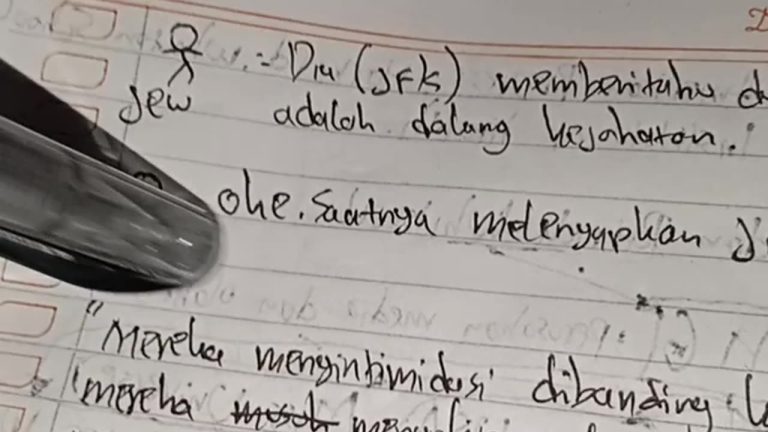 :- Dia (JFK) memberitahu
Jew adalah dalang kejahatan.
oke. Saatnya melenyapkan J
"Mereka mengintimidasi dibanding
"mereka